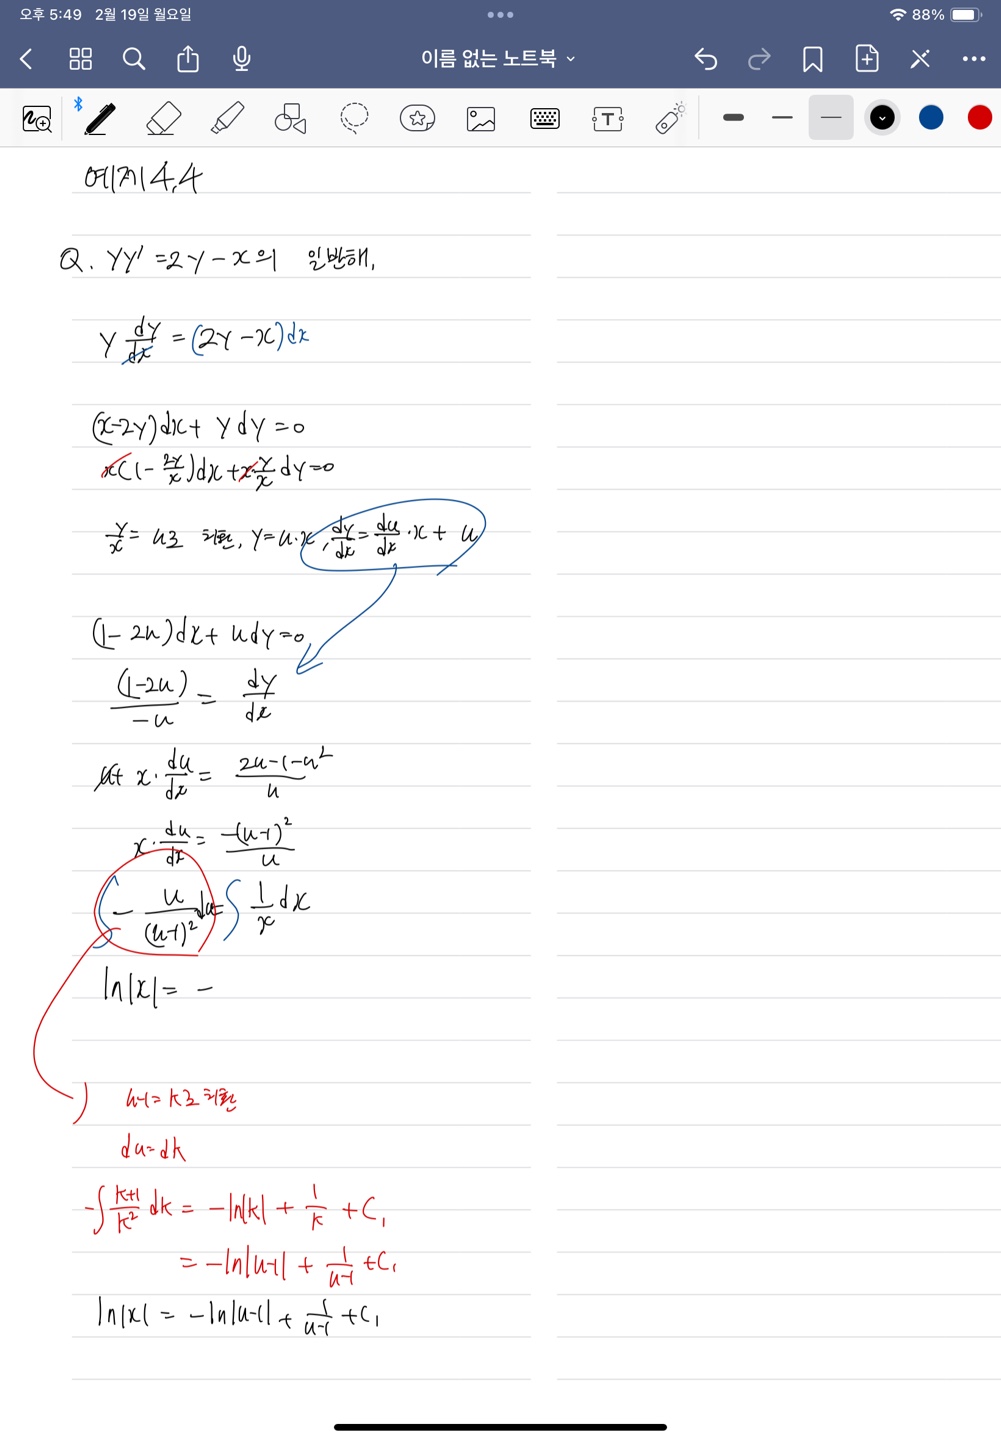 오후 5:49 2월 19일 월요일
88%
이름 없는 노트북
예제 4.4
Q. yy' = 2y - x의 일반해.
y dy/dx = (2y - x)dx
(x-2y)dx + ydy = 0
x(1 - 2y/x)dx + x·y/x dy = 0
y/x = u로 치환, y = u·x, dy/dx = du/dx · x + u
(1 - 2u)dx + udy = 0
(1-2u)/-u = dy/dx
u + x · du/dx = 2u-1-u²/u
x · du/dx = -(u-1)²/u
∫ - u/(u-1)² du = ∫ 1/x dx
ln|x| = -
u-1 = k로 치환
du = dk
-∫ k+1/k² dk = -ln|k| + 1/k + C₁
= -ln|u-1| + 1/u-1 + C₁
ln|x| = -ln|u-1| + 1/u-1 + C₁